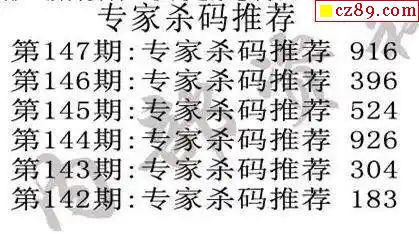 cz89.com
专家杀码推荐
第147期:专家杀码推荐 916
第146期:专家杀码推荐 396
第145期:专家杀码推荐 524
第144期:专家杀码推荐 926
第143期:专家杀码推荐 304
第142期:专家杀码推荐 183